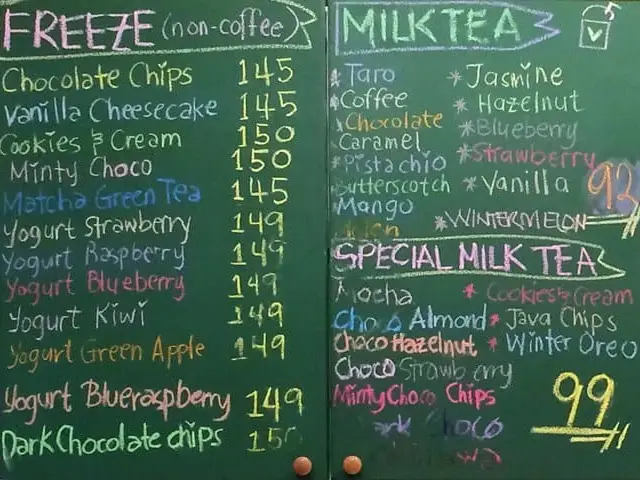 FREEZE (non-coffee)
Chocolate Chips 145
Vanilla Cheesecake 145
Cookies & Cream 150
Minty Choco 150
Matcha Green Tea 145
Yogurt Strawberry 149
Yogurt Raspberry 149
Yogurt Blueberry 149
Yogurt Kiwi 149
Yogurt Green Apple 149
Yogurt Blueraspberry 149
Dark Chocolate chips 150
MILK TEA
* Taro * Jasmine
Coffee * Hazelnut
* Chocolate * Blueberry
Caramel * Strawberry
* Pistachio * Vanilla
Butterscotch
Mango * WINTERMELON
SPECIAL MILK TEA
Mocha * Cookies & Cream
Choco Almond * Java Chips
Choco Hazelnut * Winter Oreo
Choco Strawberry
Minty Choco Chips
99
Dark Choco